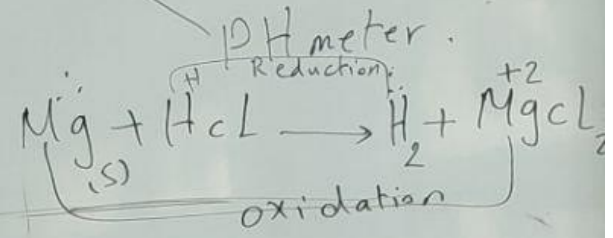 PH meter.
Reduction
H +2
Mg + HcL → H2 + MgcL2
(s)
oxidation